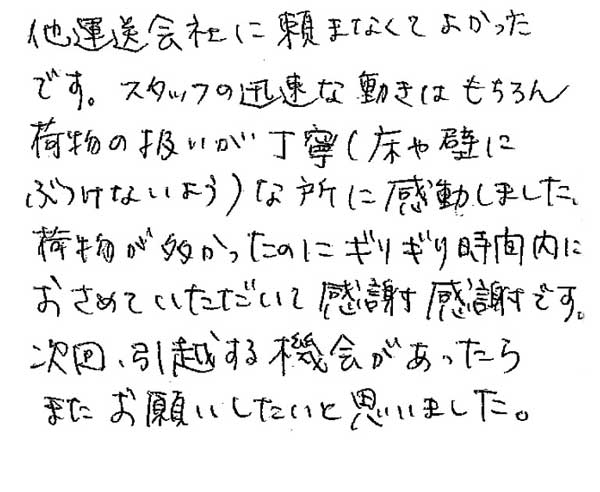 他運送会社に頼まなくてよかった
です。スタッフの迅速な動きはもちろん
荷物の扱いが丁寧(床や壁に
ぶつけないよう)な所に感動しました。
荷物が多かったのにギリギリ時間内に
おさめていただいて感謝感謝です。
次回、引越する機会があったら
またお願いしたいと思いました。